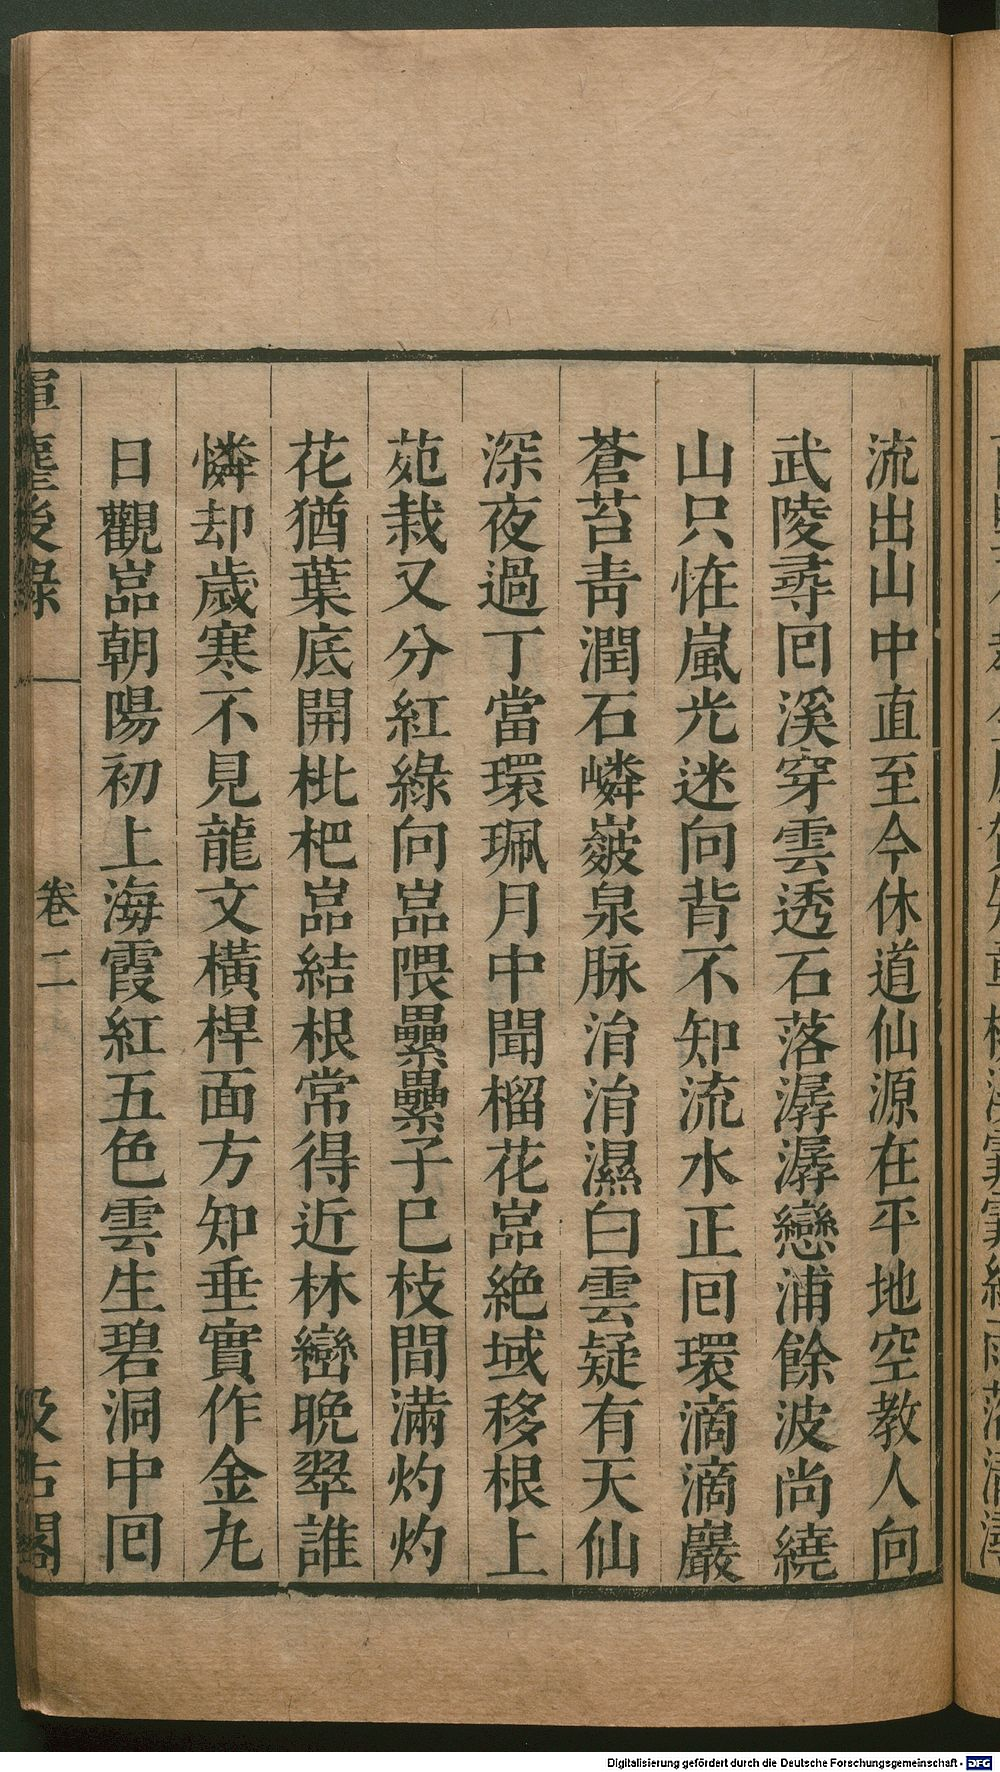 流出山中直至今休道仙源在平地空教人向
武陵尋回溪穿雲透石落潺潺戀浦餘波尚繞
山只恠嵐光迷向背不知流水正回環滴滴巖
蒼苔靑潤石嶙皴泉脉涓涓濕白雲疑有天仙
深夜過丁當環珮月中聞榴花嵓絶域移根上
苑栽又分紅綠向嵓隈纍纍子巳枝間滿灼灼
花猶葉底開枇杷嵓結根常得近林巒晚翠誰
憐却歲寒不見龍文橫桿面方知垂實作金丸
日觀嵓朝陽初上海霞紅五色雲生碧洞中回
揮麈後錄
卷二
汲古閣
Digitalisierung gefördert durch die Deutsche Forschungsgemeinschaft - DFG